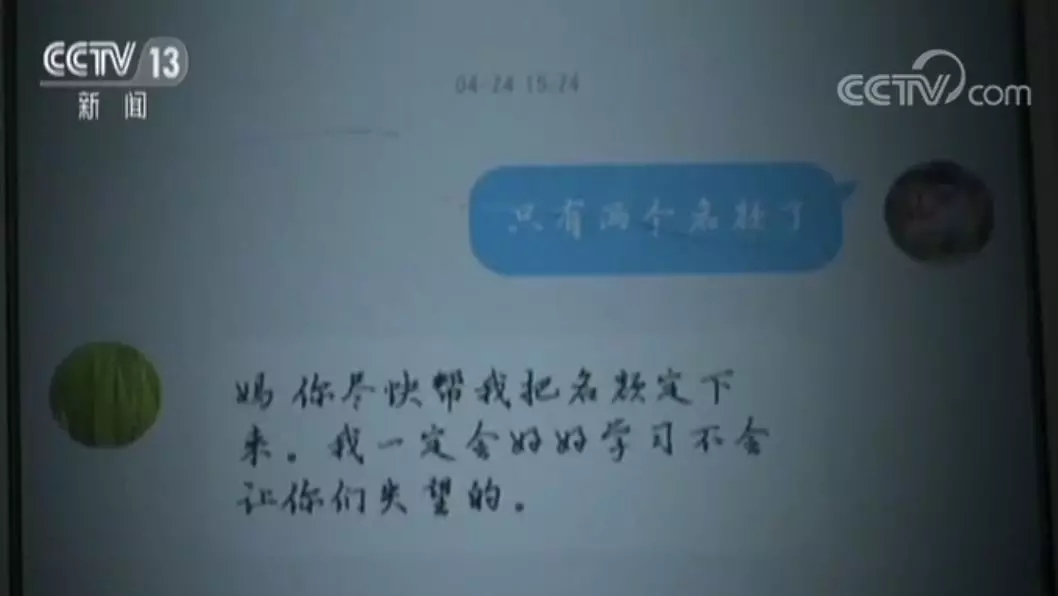 CCTV 13
新闻
CCTV.com
04-24 15:24
只有两个名额了
妈你尽快帮我把名额定下
来。我一定会好好学习不会
让你们失望的。